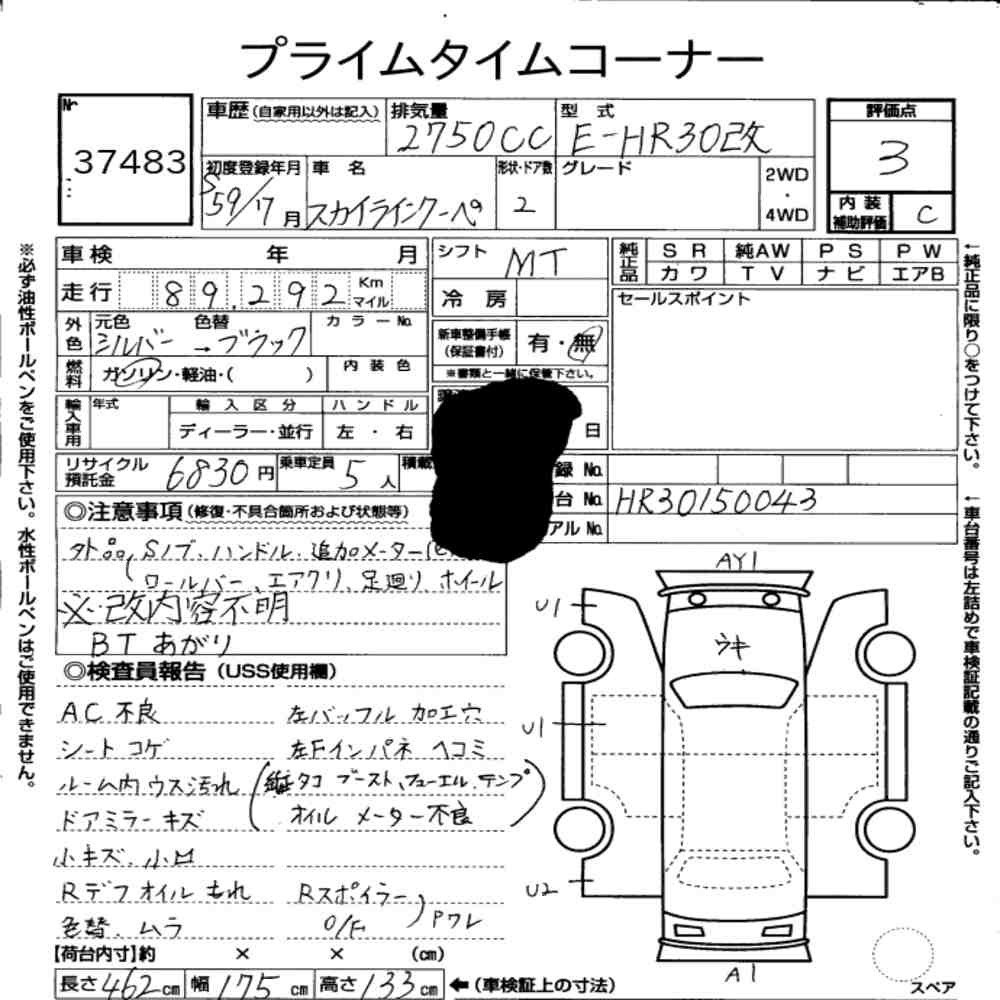 プライムタイムコーナー
№
37483
車歴(自家用以外は記入)
排気量
2750CC
型 式
E-HR30改
評価点
3
初度登録年月
S59/17月
車 名
スカイラインクーペ
形状・ドア数
2
グレード
2WD
・
4WD
内 装
補助評価
C
車検 年 月
走行 89,292 Km
マイル
シフト MT
冷 房
純正品
S R 純AW P S P W
カ ワ T V ナ ビ エアB
セールスポイント
外色
元色 色替
シルバー → ブラック
カ ラ ー №
新車整備手帳
(保証書付)
有・無
※書類と一緒に保管下さい。
燃料
ガソリン・軽油・( )
内 装 色
輸入車用
年式
輸 入 区 分
ディーラー・並行
ハ ン ド ル
左 ・ 右
日
リサイクル
預託金
6830円
乗車定員
5人
積載
録 №
台 №
HR30150043
アル №
◎注意事項(修復・不具合箇所および状態等)
外品,Sノブ、ハンドル、追加メーター
ロールバー、エアクリ、足廻り、ホイール
※改内容不明
BTあがり
◎検査員報告(USS使用欄)
AC 不良
左バッフル 加工穴
シート コゲ
左Fインパネ ヘコミ
ルーム内ウス汚れ
(縦タコ ブースト、フューエル、テンプ
ドアミラー キズ
オイル メーター不良)
小キズ、小凹
Rデフオイルもれ
Rスポイラー
色替、ムラ
O/F
)Pワレ
【荷台内寸】約 × × (cm)
長さ462cm 幅175cm 高さ133cm ←(車検証上の寸法)
AY1
U1
ウキ
U1
U2
A1
スペア
※必ず油性ボールペンをご使用下さい。水性ボールペンはご使用できません。
←純正品に限り○をつけて下さい。
←車台番号は左詰めで車検証記載の通りご記入下さい。